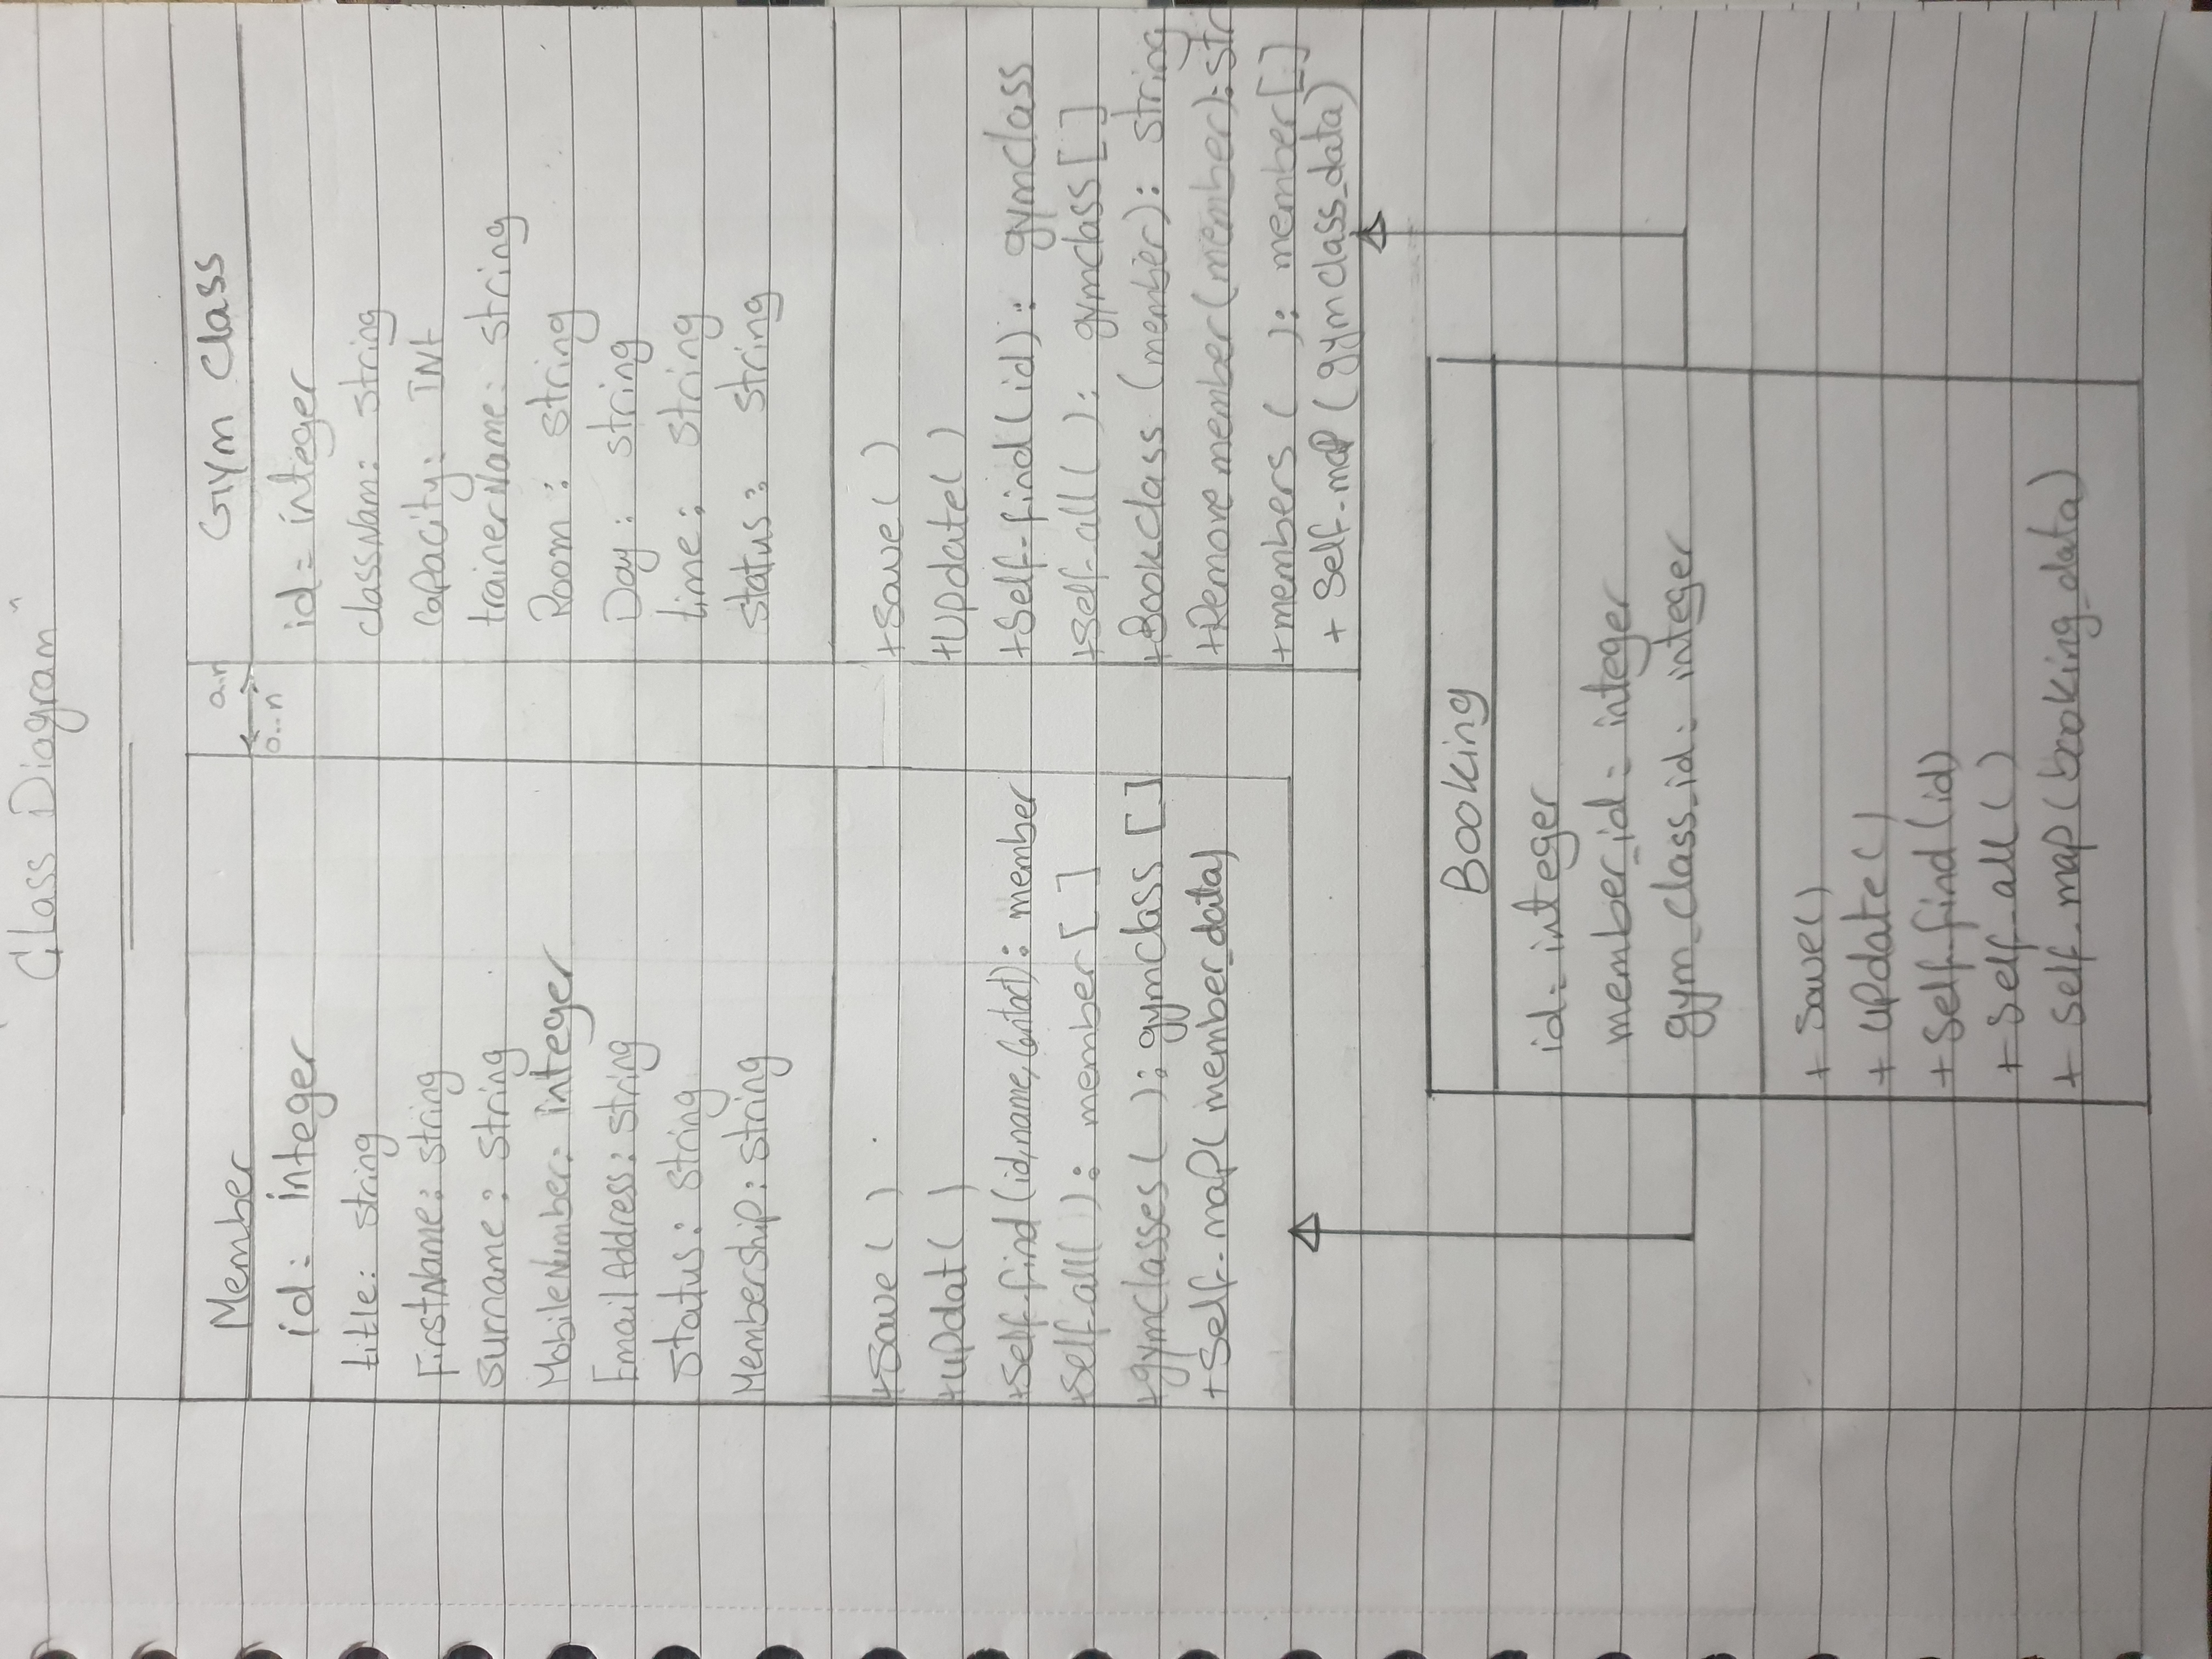 "Class Diagram"
Member
id: integer
title: string
FirstName: string
surname: string
MobileNumber: integer
Email Address: string
status: string
Membership: string
+save( )
+updat( )
+Self.find(id,name,Contact): member
+Self.all( ): member[ ]
+gymclasses( ): gymclass [ ]
+Self.map(member_data)
0..n
0..n
Gym Class
id: integer
classNam: string
capacity: INt
trainerName: string
Room: string
Day: string
time: string
status: string
+save( )
+Update( )
+Self.find(id): gymclass
+Self.all( ): gymclass[ ]
+Bookclass (member): string
+Remove member(member): str
+members ( ): member[ ]
+ Self.map(gymclass_data)
Booking
id: integer
member_id: integer
gym_class_id: integer
+ Save()
+ update()
+ Self.find(id)
+ Self.all()
+ Self.map(booking_data)